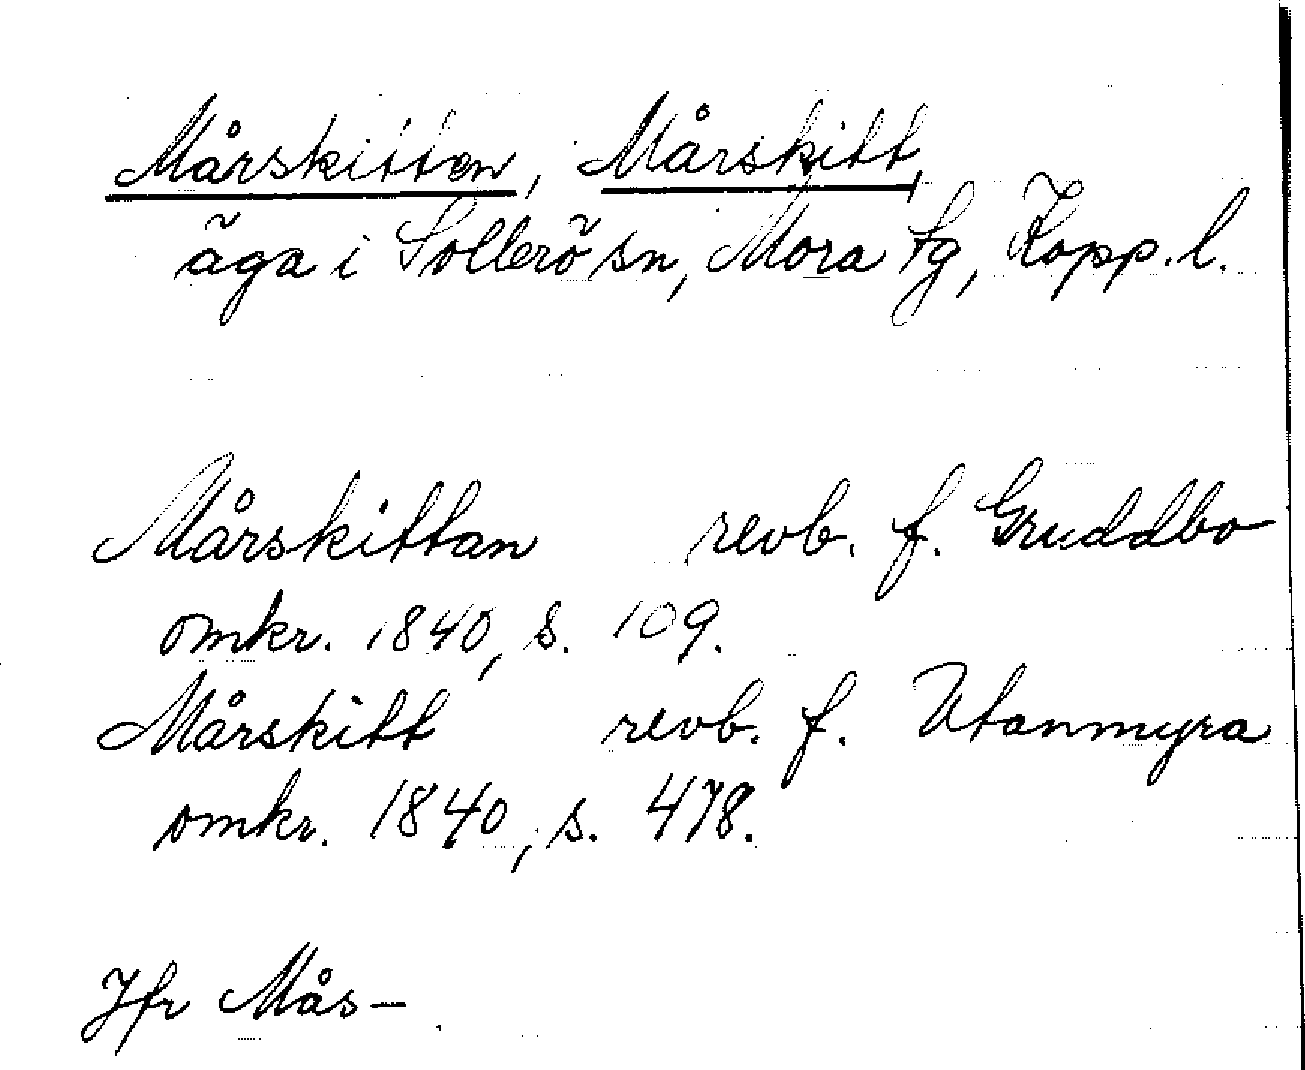 Mårskitten, Mårskitt,
äga i Sollerö sn, Mora tg, Kopp. l.
Mårskittan revb. f. Gruddbo
omkr. 1840, s. 109.
Mårskitt revb. f. Utanmyra
omkr. 1840, s. 478.
Jfr Mås-